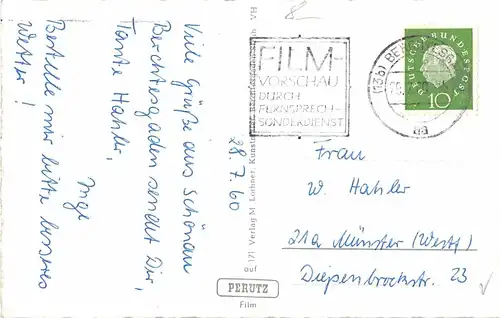 Viele Grüße aus Schönau
Berchtesgaden sendet Dir,
Tante Hahler,
Inge
Bestelle mir bitte besseres
Wetter!
28.7.60
VH
171 Verlag M. Lochner,
auf
PERUTZ
Film
FILM-
VORSCHAU
DURCH
FERNSPRECH-
SONDERDIENST
(13b)
DEUTSCHE BUNDESPOST
10
Frau
W. Hahler
21a Münster (Westf)
Diepenbrockstr. 23